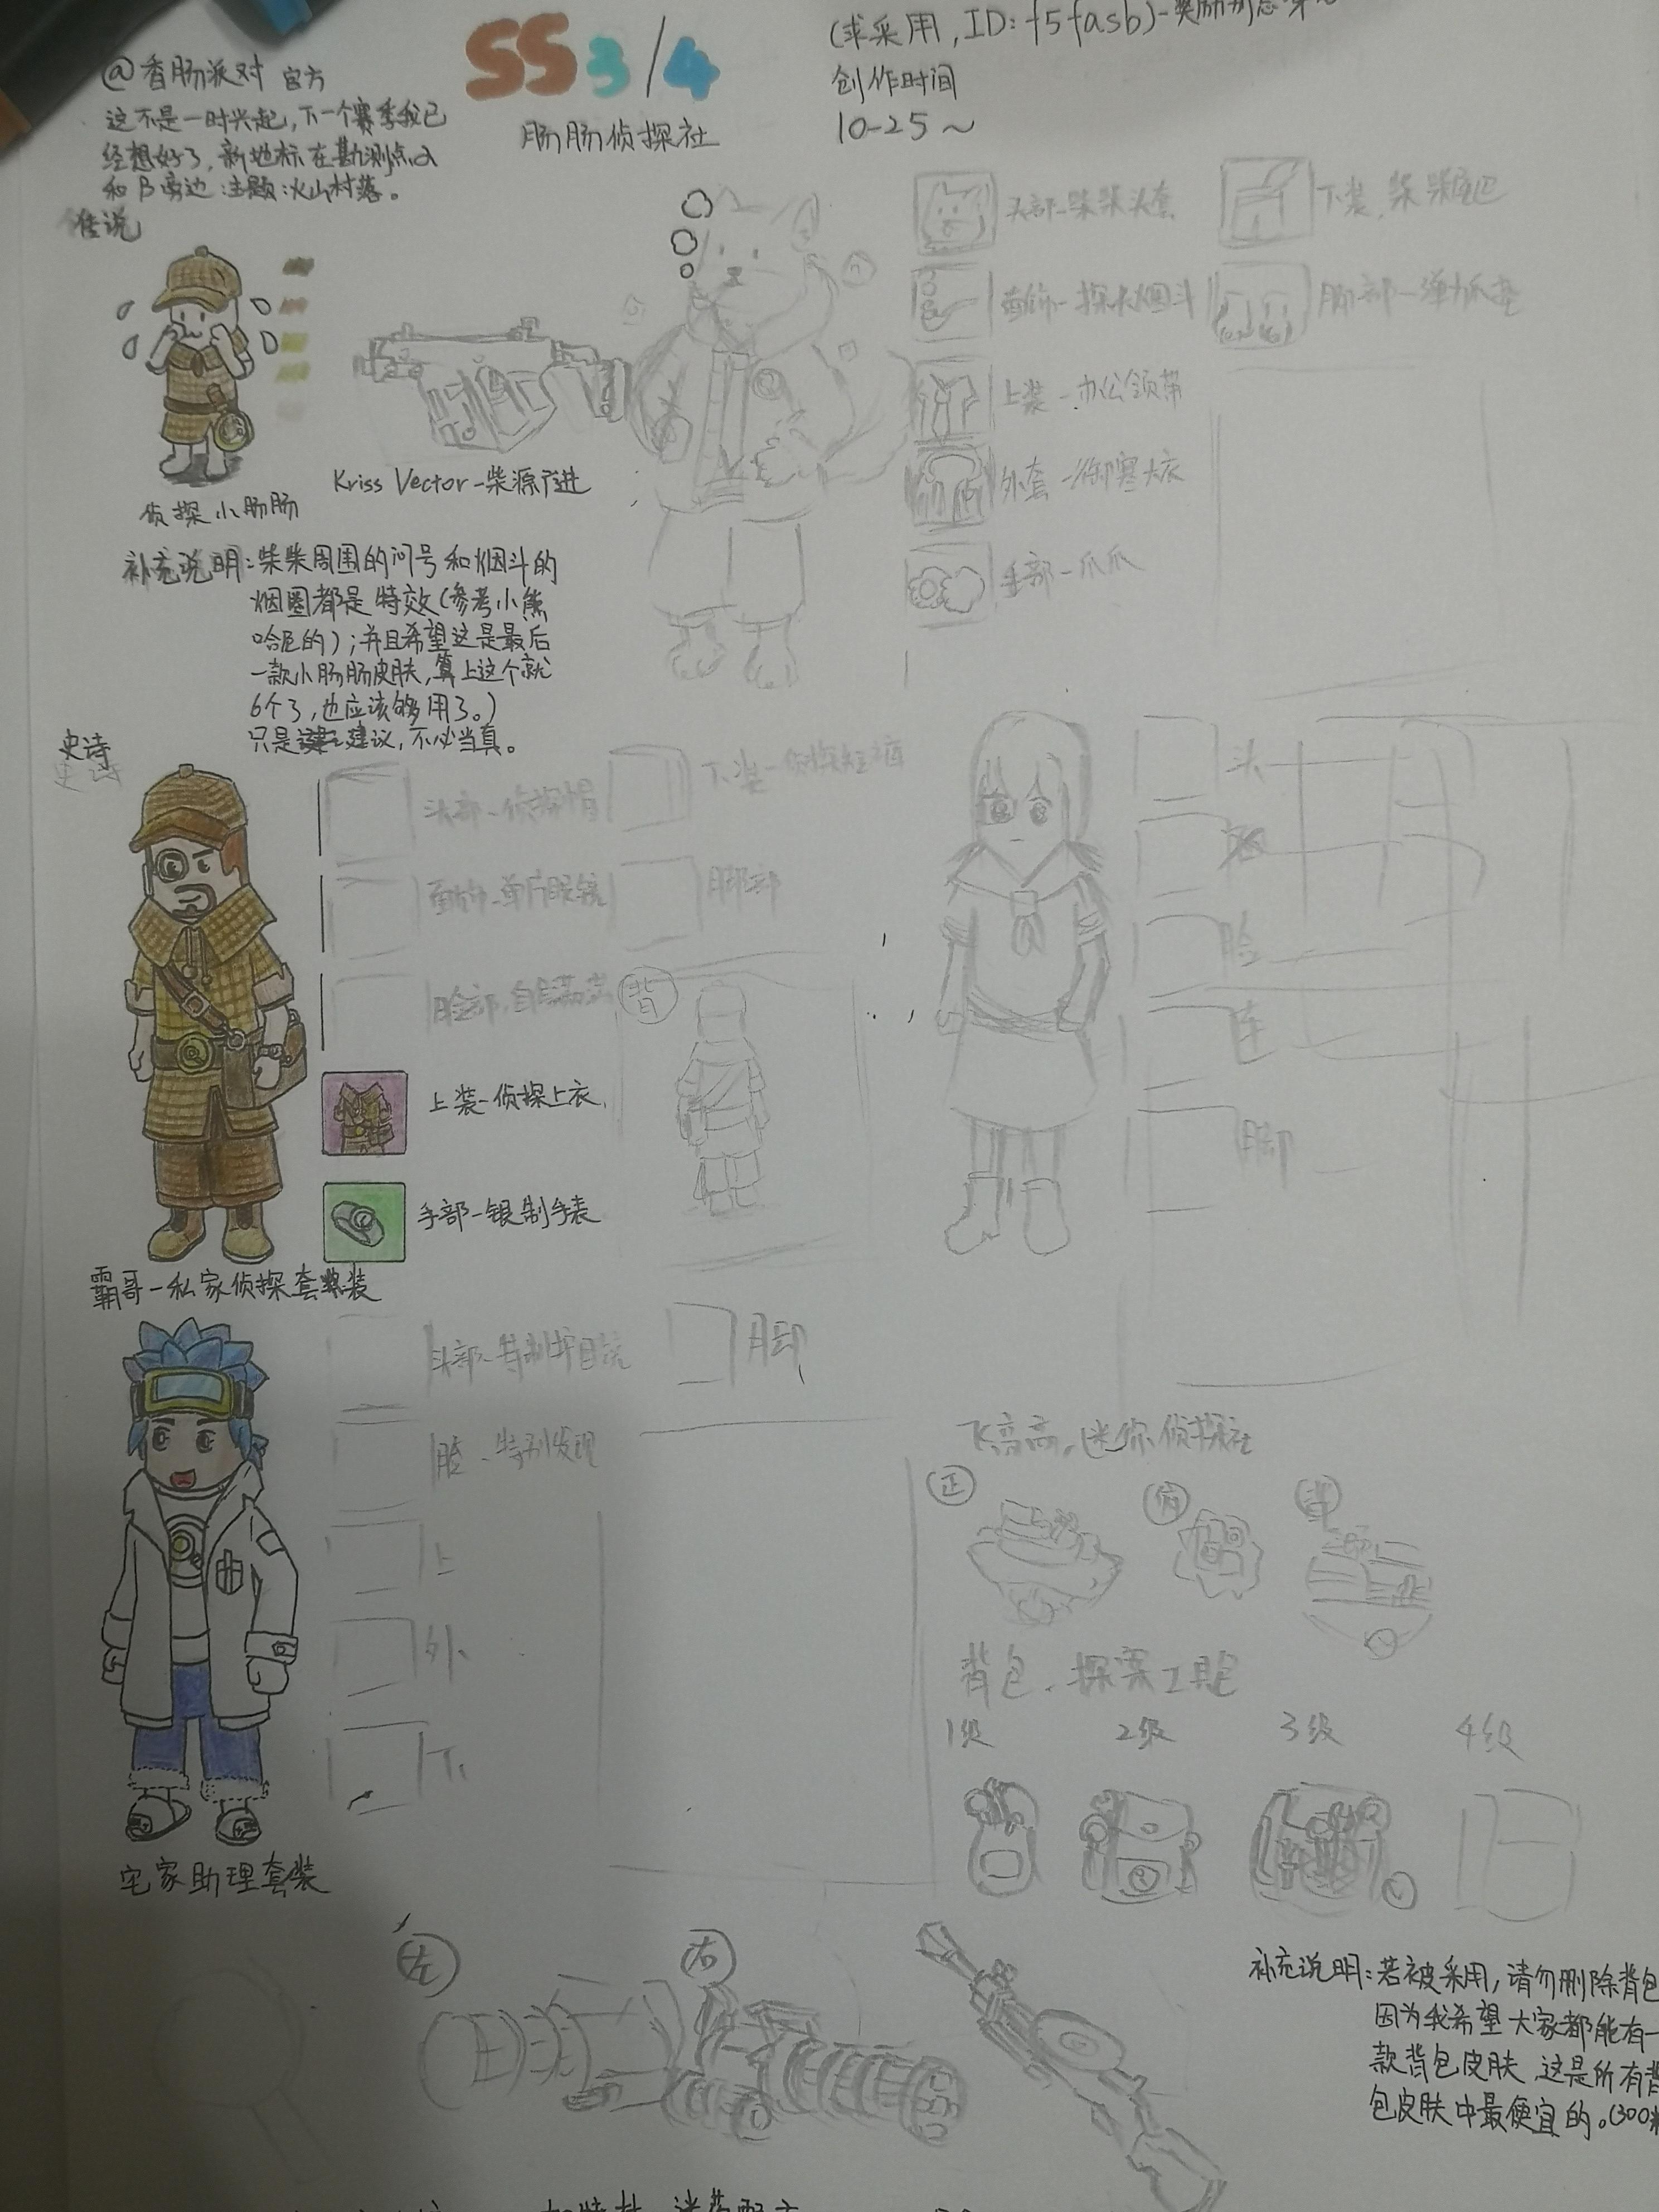 @香肠派对 官方
这不是一时兴起，下一个赛季我已
经想好了，新地标在勘测点α
和β旁边 主题:火山村落。
SS3/4
肠肠侦探社
(求采用，ID:f5fasb)-奖励
创作时间
10-25～
传说
侦探小肠肠
Kriss Vector-柴源广进
头部-柴柴头套
面饰-探长烟斗
上装-办公领带
外套-御寒大衣
手部-爪爪
下装-柴柴尾巴
脚部-弹力爪垫
补充说明:柴柴周围的问号和烟斗的
烟圈都是特效(参考小熊
哈尼的);并且希望这是最后
一款小肠肠皮肤，算上这个就
6个了，也应该够用了。)
只是建议，不必当真。
史诗
头部-侦探帽
面饰-单片眼镜
脸部-自信满满
上装-侦探上衣
手部-银制手表
下装-侦探短裤
脚部
背
霸哥-私家侦探套装
头
脸
连
脚
头部-特制护目镜
脸-特别发现
上
外
下
脚
宅家助理套装
飞高高，迷你侦探社
正
俯
背
背包-探案工具包
1级
2级
3级
4级
左
右
补充说明:若被采用，请勿删除背包
因为我希望大家都能有一
款背包皮肤，这是所有背
包皮肤中最便宜的。(300